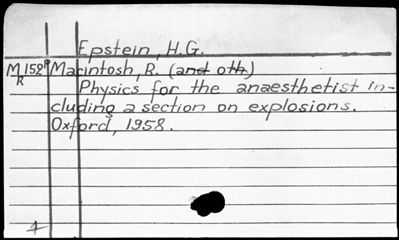 Epstein, H.G.
M 152P Macintosh, R. (and oth)
R
Physics for the anaesthetist in-
cluding a section on explosions.
Oxford, 1958.